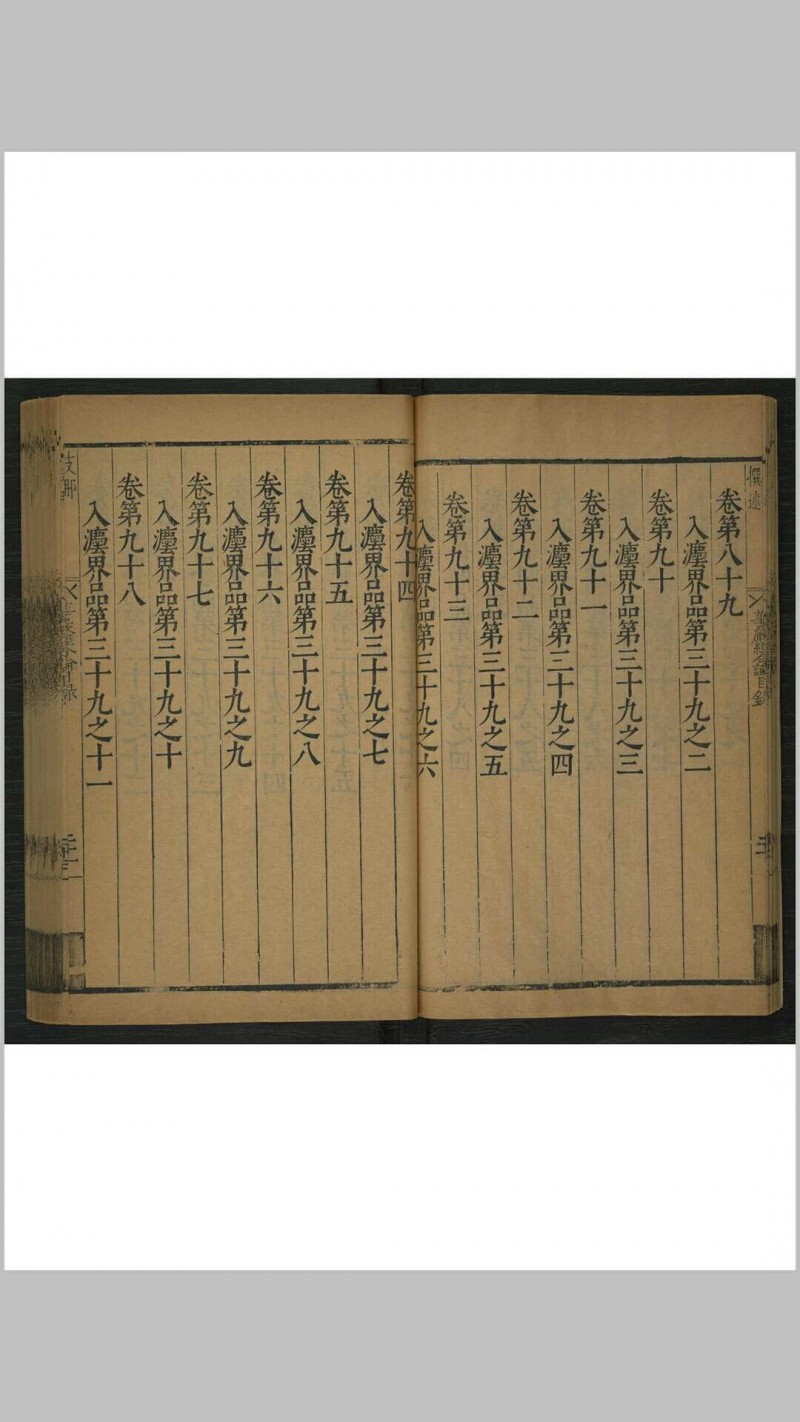 撰述
卷第八十九
入灋界品第三十九之二
卷第九十
入灋界品第三十九之三
卷第九十一
入灋界品第三十九之四
卷第九十二
入灋界品第三十九之五
卷第九十三
入灋界品第三十九之六
卷第九十四
入灋界品第三十九之七
卷第九十五
入灋界品第三十九之八
卷第九十六
入灋界品第三十九之九
卷第九十七
入灋界品第三十九之十
卷第九十八
入灋界品第三十九之十一
支那